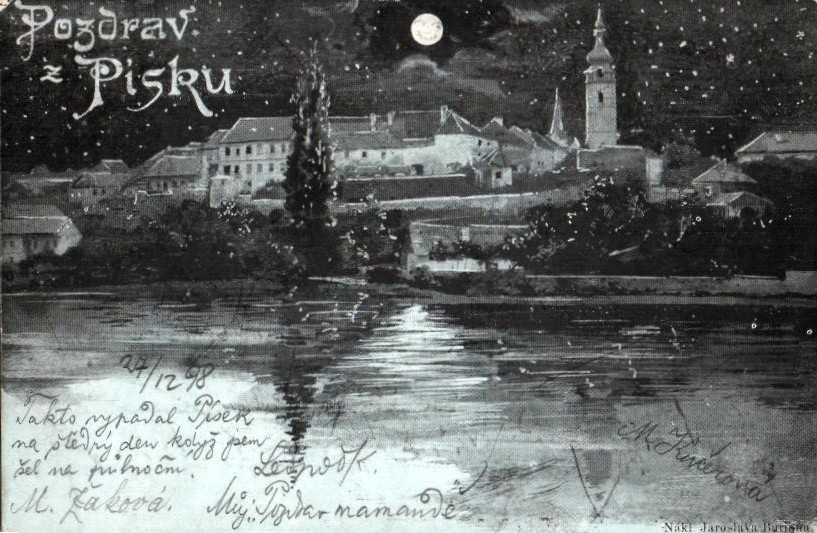 Pozdrav
z Písku
27/12 98
Takto vypadal Písek
na štědrý den když jsem
šel na půlnoční.
M. Žáková.
Leopold K.
Můj
M. Kučerová
Nákl. Jaroslava Buriana.